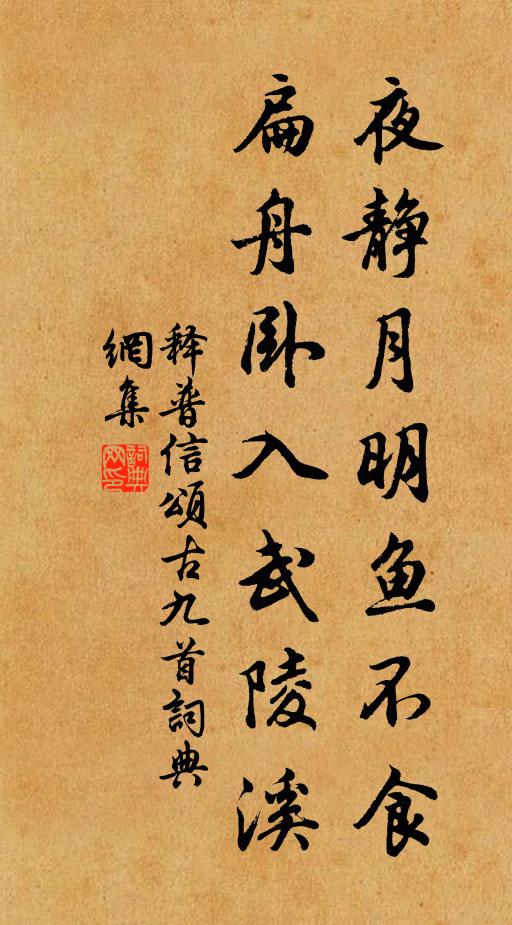 夜静月明鱼不食
扁舟卧入武陵溪
释普信頌古九首詞典
網集
詞典
网印